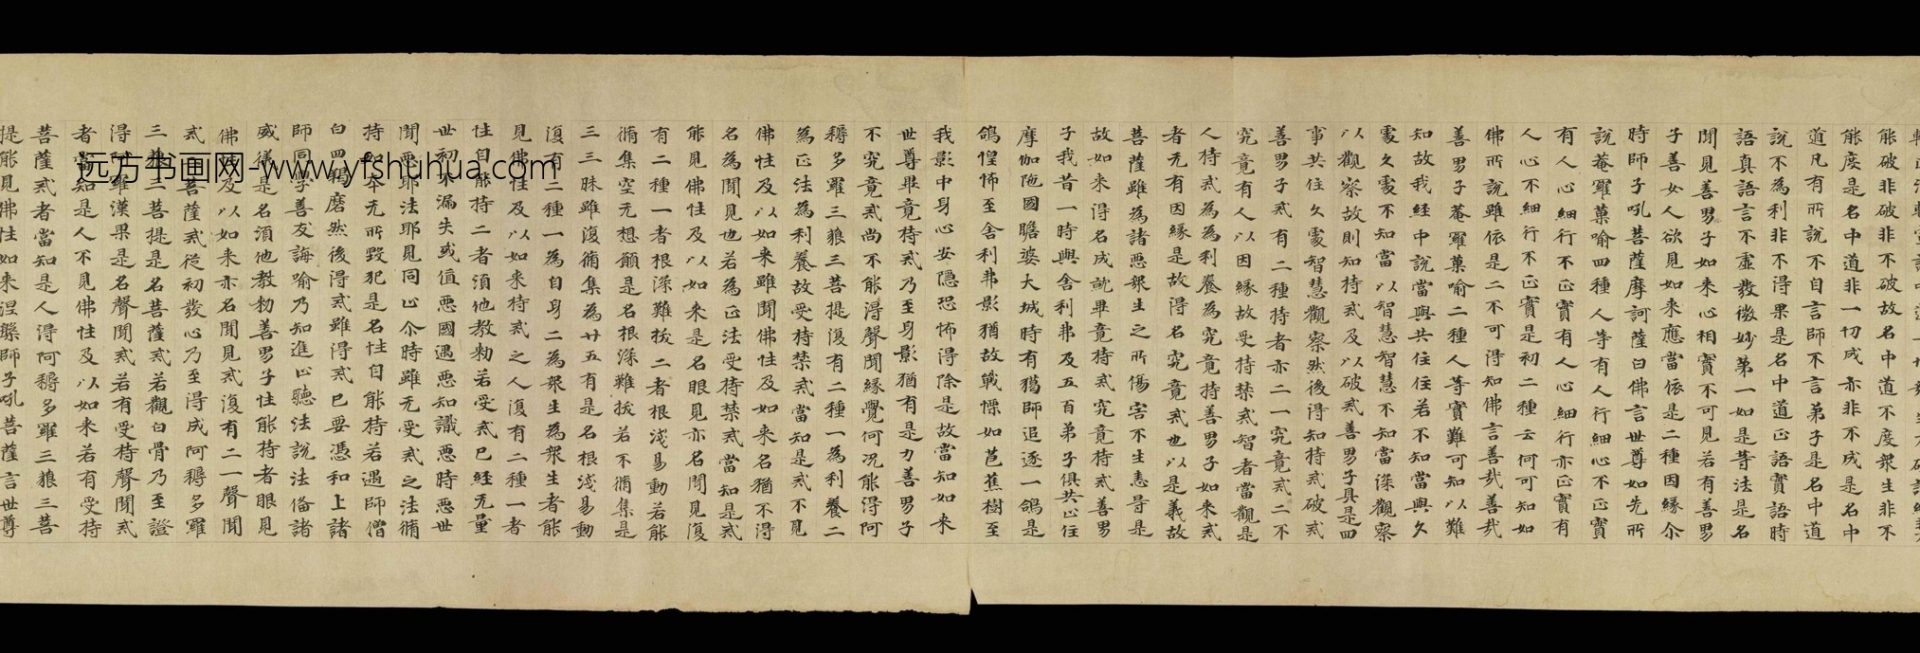 能破非破非不破故名中道不度眾生非不
能度是名中道非一切成亦非不成是名中
道凡有所說不自言師不言弟子是名中道
說不為利非不得果是名中道正語實語時
語真語言不虛發微妙第一如是等法是名
聞見善男子如来心相實不可見若有善男
子善女人欲見如来應當依是二種因緣尒
時師子吼菩薩摩訶薩白佛言世尊如先所
說菴羅菓喻四種人等有人行細心不正實
有人心細行不正實有人心細行亦正實有
人心不細行不正實是初二種云何可知如
佛所說雖依是二不可得知佛言善哉善哉
善男子菴羅菓喻二種人等實難可知以難
知故我經中說當與共住住若不知當與久
處久處不知當以智慧智慧不知當深觀察
以觀察故則知持戒及以破戒善男子具是四
事共住久處智慧觀察然後得知持戒破戒
善男子戒有二種持者亦二一究竟戒二不
究竟有人以因緣故受持禁戒智者當觀是
人持戒為為利養為究竟持善男子如来戒
者无有因緣是故得名究竟戒也以是義故
菩薩雖為諸惡眾生之所傷害不生恚㝵是
故如来得名成就畢竟持戒究竟持戒善男
子我昔一時與舍利弗及五百弟子俱共止住
摩伽陁國瞻婆大城時有獵師追逐一鴿是
鴿惶怖至舍利弗影猶故戰慄如芭蕉樹至
我影中身心安隱恐怖得除是故當知如来
世尊畢竟持戒乃至身影猶有是力善男子
不究竟戒尚不能得聲聞緣覺何況能得阿
耨多羅三藐三菩提復有二種一為利養二
為正法為利養故受持禁戒當知是戒不見
佛性及以如来雖聞佛性及如来名猶不得
名為聞見也若為正法受持禁戒當知是戒
能見佛性及以如来是名眼見亦名聞見復
有二種一者根深難拔二者根淺易動若能
脩集空无想願是名根深難拔若不脩集是
三三昧雖復脩集為廿五有是名根淺易動
復有二種一為自身二為眾生為眾生者能
見佛性及以如来持戒之人復有二種一者
性自能持二者須他教勑若受戒已經无量
世初不漏失或值惡國遇惡知識惡時惡世
聞惡耶法耶見同止尒時雖无受戒之法脩
持如本无所毀犯是名性自能持若遇師僧
白四羯磨然後得戒雖得戒已要憑和上諸
師同學善友誨喻乃知進止聽法說法俻諸
威儀是名須他教勑善男子性能持者眼見
佛性及以如来亦名聞見戒復有二一聲聞
戒二菩薩戒從初發心乃至得成阿耨多羅
三藐三菩提是名菩薩戒若觀白骨乃至證
得阿羅漢果是名聲聞戒若有受持聲聞戒
者當知是人不見佛性及以如来若有受持
菩薩戒者當知是人得阿耨多羅三藐三菩
提能見佛性如来涅槃師子吼菩薩言世尊
远方书画网-www.yfshuhua.com